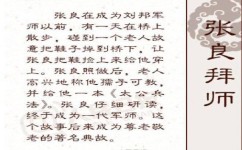 张良在成为刘邦军
师以前，有一天在桥上
散步，碰到一个老人故
意把鞋子掉到桥下，让
张良把鞋捡上来给他穿
上。张良照做后，老人
高兴地称他孺子可教，
并给他一本《太公兵
法》。张良仔细研读，
终于成为一代军师。这
个故事后来成为尊老敬
老的著名典故。
张良拜师